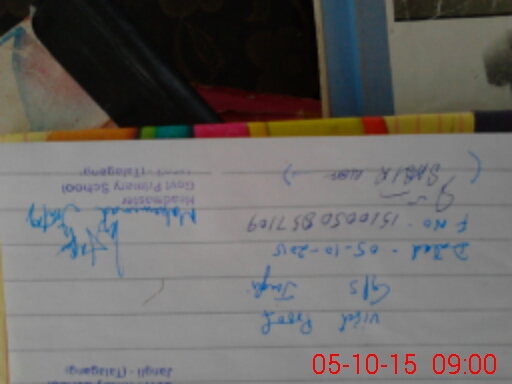 Visit Proof
G/S Jangli
Dated - 05-10-2015
F No. 1510050857109
(SABIR
Muhammad
Headmaster
Govt Primary School
Jangli - (Talagang)
Jangli - (Talagang)
05-10-15 09:00